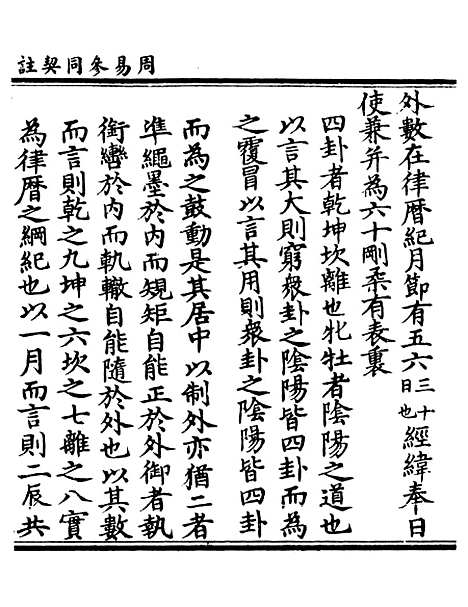 周易參同契註
外數在律曆紀月節有五六三十日也經緯奉日
使兼并為六十剛柔有表裏
四卦者乾坤坎離也牝牡者陰陽之道也
以言其大則窮衆卦之陰陽皆四卦而為
之覆冒以言其用則衆卦之陰陽皆四卦
而為之鼓動是其居中以制外亦猶工者
準繩墨於内而規矩自能正於外御者執
銜轡於内而軌轍自能隨於外也以其數
而言則乾之九坤之六坎之七離之八實
為律曆之綱紀也以一月而言則二辰共